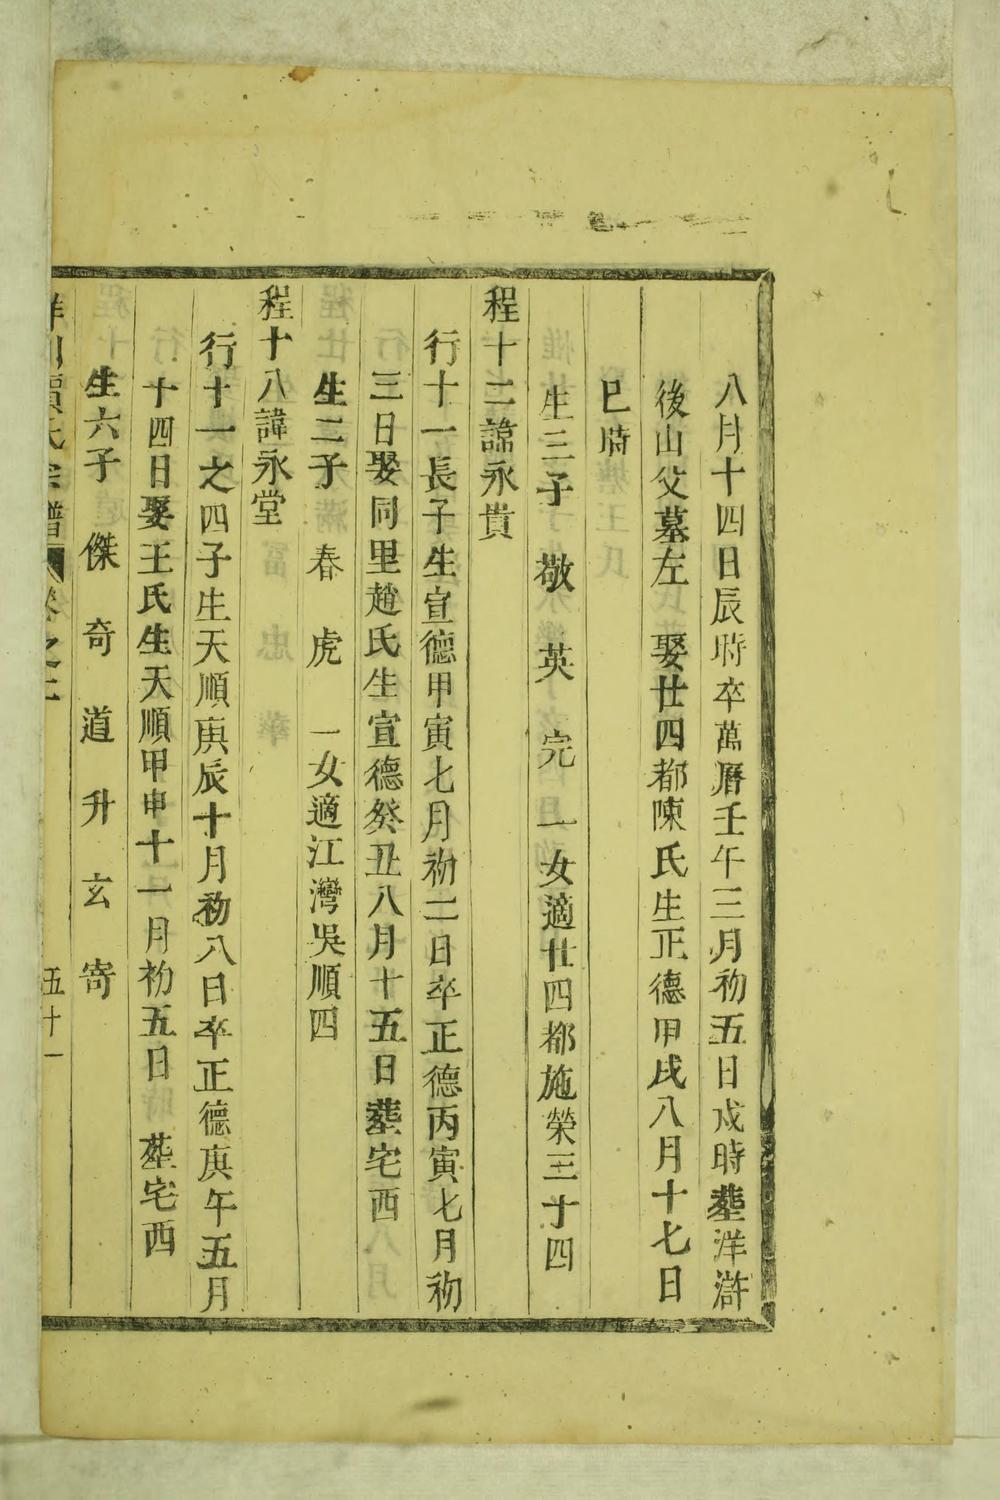 八月十四日辰時卒萬曆壬午三月初五日戍時塟洋滸
後山父墓左　娶廿四都陳氏生正德甲戌八月十七日
巳時
生三子　敬　英　完　一女適廿四都施榮三十四
程十二諱永貴
行十一長子生宣德甲寅七月初二日卒正德丙寅七月初
三日娶同里趙氏生宣德癸丑八月十五日塟宅西
生二子　春　虎　一女適江灣吳順四
程十八諱永堂
行十一之四子生天順庚辰十月初八日卒正德庚午五月
十四日娶王氏生天順甲申十一月初五日　塟宅西
生六子　傑　奇　道　升　玄　寄
氏宗譜　卷之二　五十一